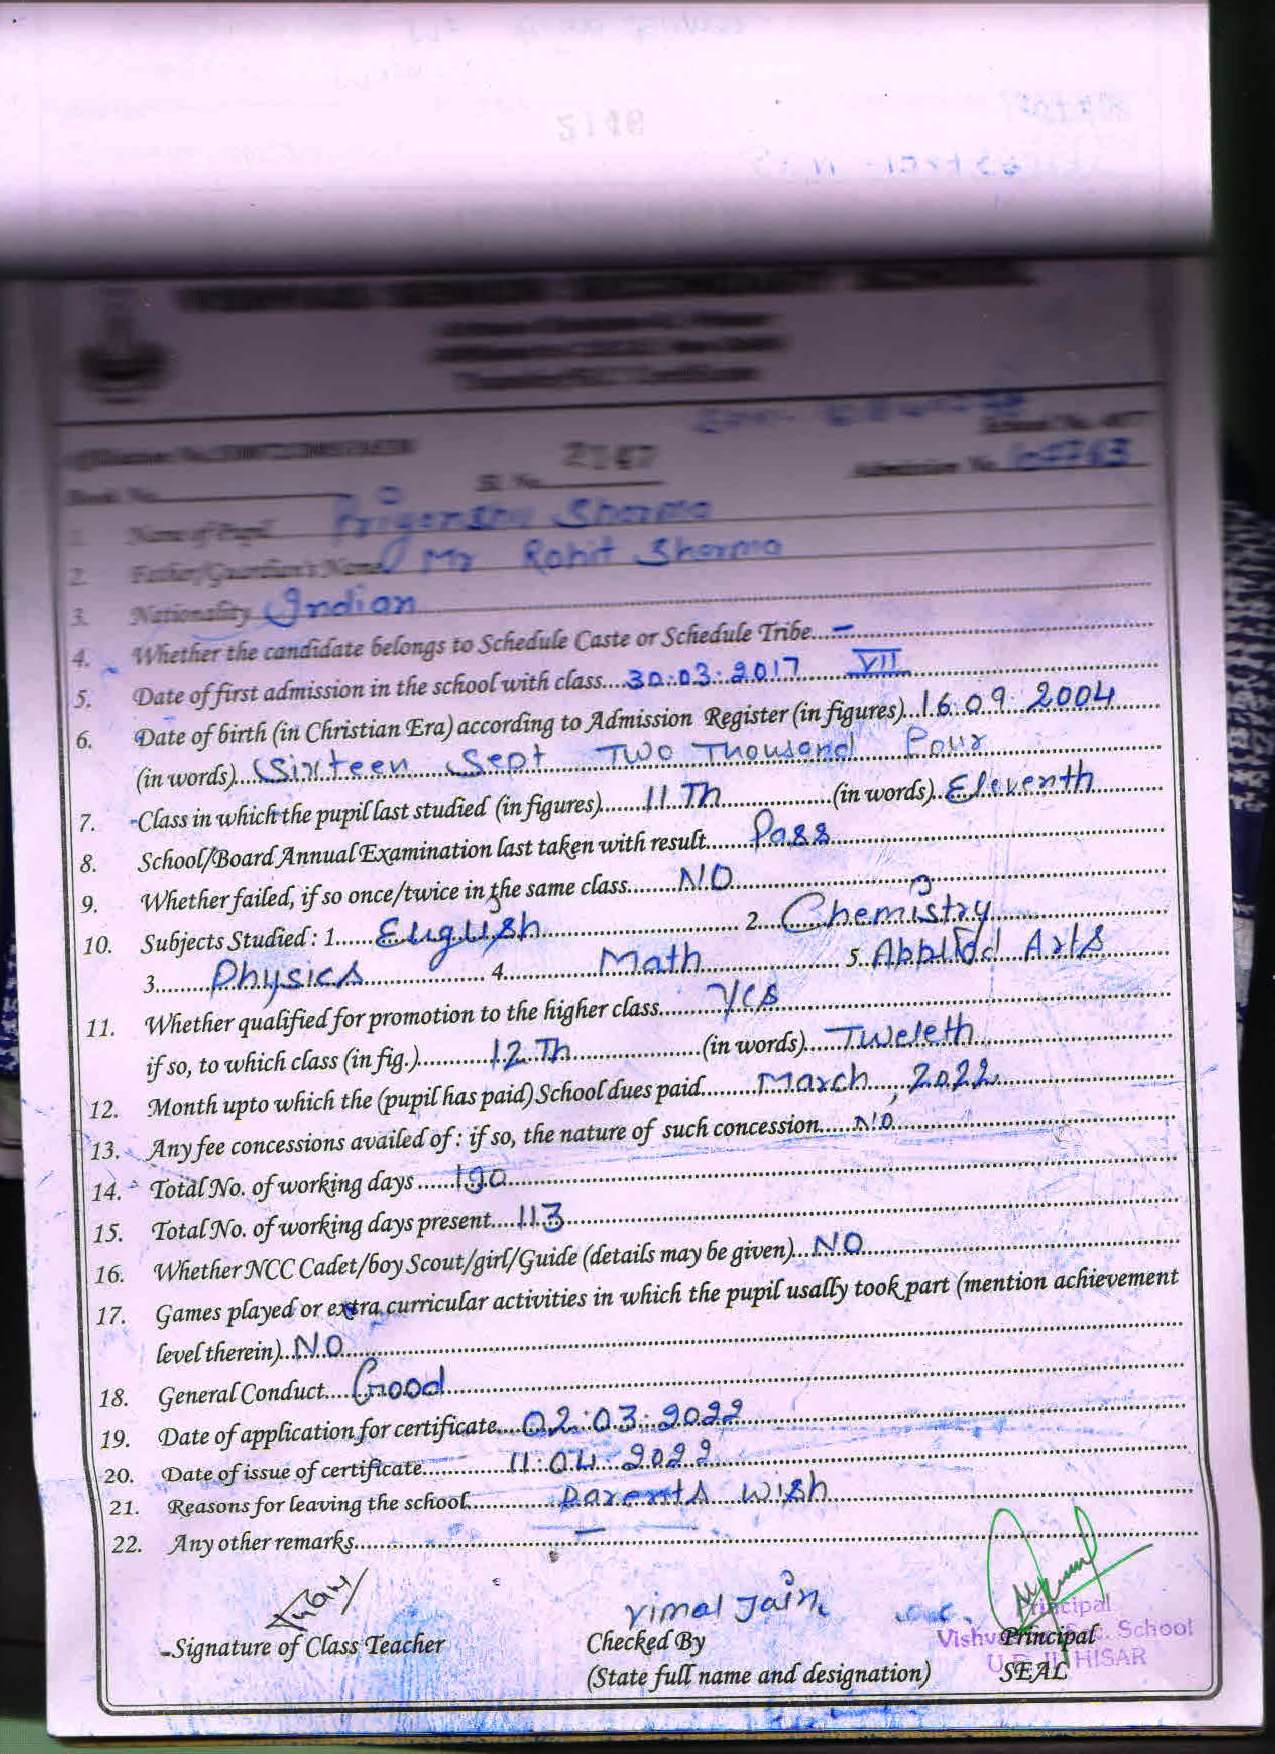 2147
Admission No. 109763
Book No. Sl. No.
1. Name of Pupil Priyanshu Sharma
2. Father/Guardian's Name Mr Rohit Sharma
3. Nationality Indian
4. Whether the candidate belongs to Schedule Caste or Schedule Tribe....–
5. Date of first admission in the school with class....30:03:2017 VII
6. Date of birth (in Christian Era) according to Admission Register (in figures)...16:09:2004
(in words)...Sixteen Sept Two Thousand Four
7. Class in which the pupil last studied (in figures).......11 Th (in words)...Eleventh
8. School/Board Annual Examination last taken with result.......Pass
9. Whether failed, if so once/twice in the same class.......NO
10. Subjects Studied : 1......English 2....Chemistry
3.........Physics 4............Math 5..Applied Arts
11. Whether qualified for promotion to the higher class.........Yes
if so, to which class (in fig.)..........12 Th (in words).....Tweleth
12. Month upto which the (pupil has paid) School dues paid........March, 2022
13. Any fee concessions availed of : if so, the nature of such concession.....NO
14. Total No. of working days......190
15. Total No. of working days present....113
16. Whether NCC Cadet/boy Scout/girl/Guide (details may be given)...NO
17. Games played or extra curricular activities in which the pupil usally took part (mention achievement
level therein)..NO
18. General Conduct....Good
19. Date of application for certificate....02:03:2022
20. Date of issue of certificate............11:04:2022
21. Reasons for leaving the school...............Parents wish
22. Any other remarks........–
Vimal Jain
Principal
Signature of Class Teacher Checked By Principal
Sec. School
(State full name and designation) SEAL
HISAR